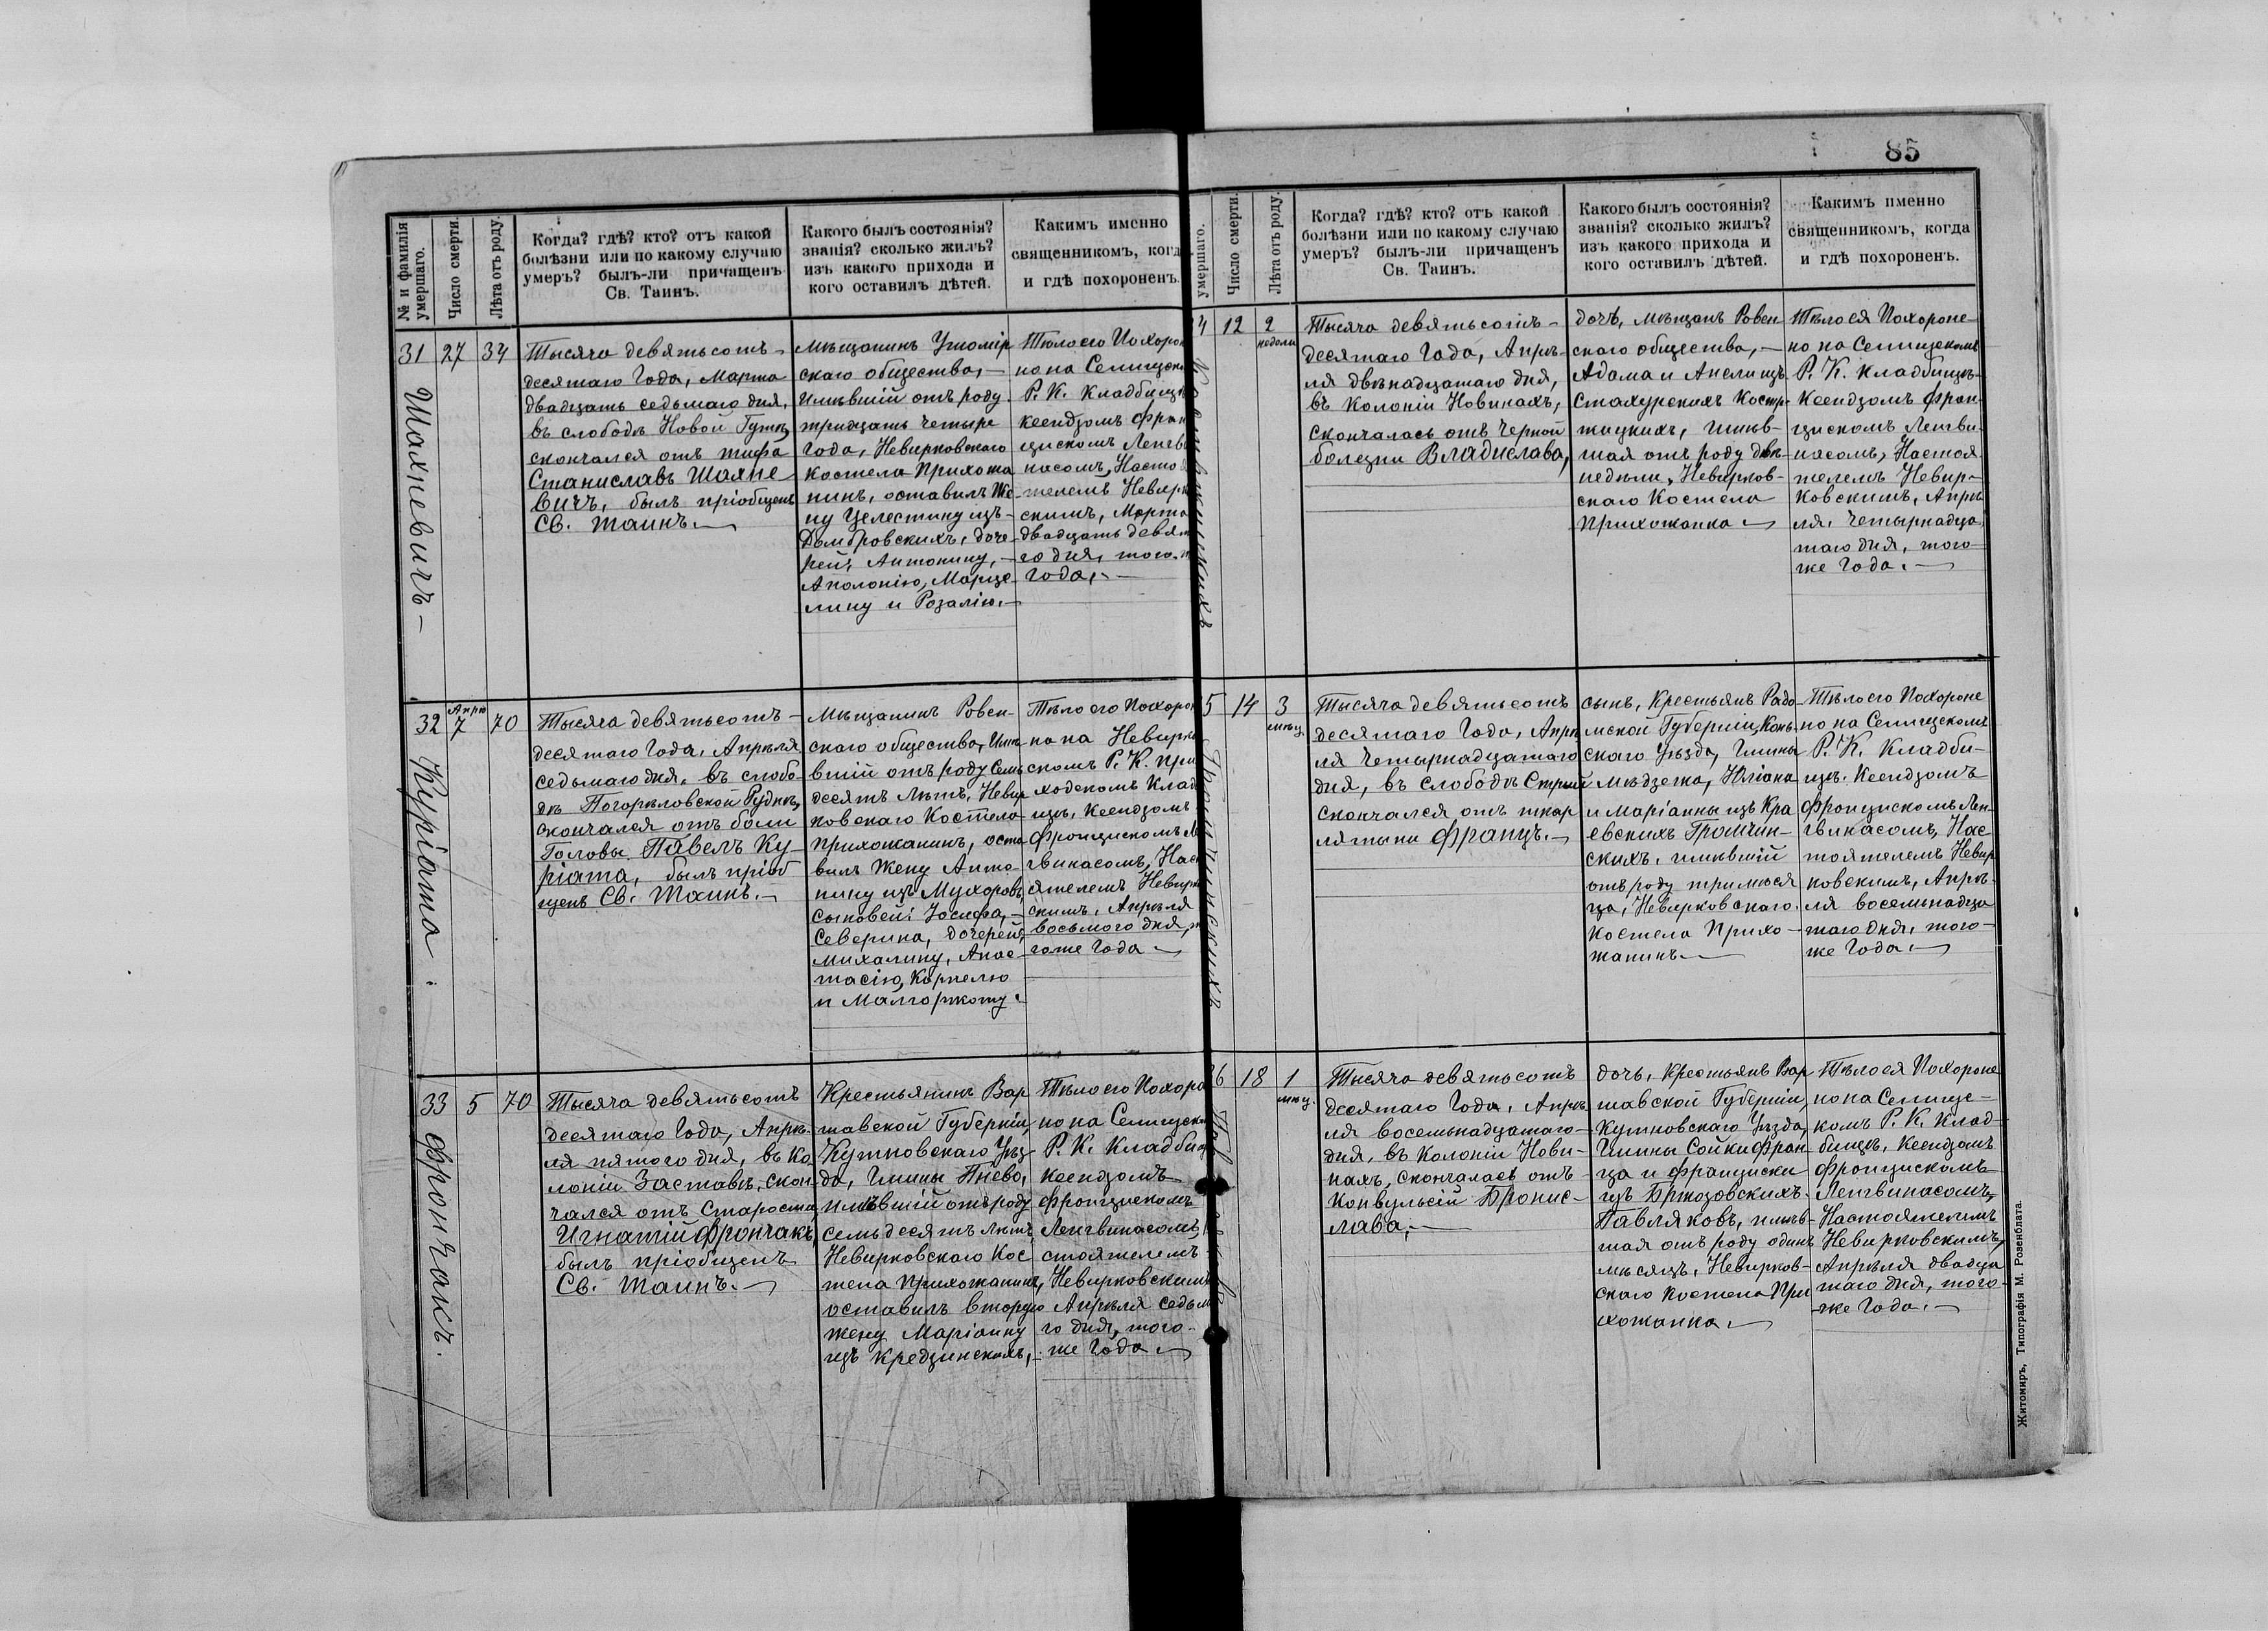 85
№ и фамилія умершаго.
Число смерти.
Лѣта отъ роду.
Когда? гдѣ? кто? отъ какой
болѣзни или по какому случаю
умеръ? былъ-ли причащенъ
Св. Таинъ.
Какого былъ состоянія?
званія? сколько жилъ?
изъ какого прихода и
кого оставилъ дѣтей.
Какимъ именно
священникомъ, когд
и гдѣ похороненъ
31
Шахневичъ
27
34
Тысяча девятьсотъ
десятаго Года, Марта
двадцать седьмаго дня,
въ слободѣ Новой Гутѣ,
скончался отъ тифа
Станиславъ Шахне-
вичъ, былъ пріобщенъ
Св. Таинъ.
Мѣщанинъ Ушомір
скаго общества,
имѣвшій отъ роду
тридцать четыре
года, Невирковскаго
костела Прихожа
нинъ, оставилъ Же-
ну Целестину изъ
Домбровскихъ, доче-
рей, Антонину,
Аполонію, Марце-
лину и Розалію.
Тѣло его Похорон
но на Селищеск
Р. К. Кладбищѣ
ксендзомъ Фран
цискомъ Ленгв
насомъ, Насто
телемъ Невирк
скимъ, Марта
двадцать девят
го дня, того
Года.
32
Куріата
Апрѣ
7
70
Тысяча девятьсотъ
десятаго Года, Апрѣля
седьмаго дня, въ слобо-
дѣ Погорѣловской Рудкѣ,
скончался отъ боли
Головы Павелъ Ку-
ріата, былъ пріоб
щенъ Св. Таинъ.
Мѣщанинъ Ровен-
скаго общества, Имѣ
вшій отъ роду Семь
десятъ Лѣтъ, Невир
ковскаго Костела
прихожанинъ, оста
вилъ Жену Анто-
нину изъ Мухоровъ,
сыновей: Іосифа,
Северина, дочерей,
Михалину, Анас-
тасію, Корнелю
и Малгоржату.
Тѣло его Похорон
но на Невирко
скомъ Р. К. При
ходскомъ Клад
щѣ, Ксендзомъ
Францискомъ Ле
гвинасомъ, Нас
ятелемъ Невирк
скимъ, Апрѣля
восьмого дня, т
гоже Года
33
Фрончакъ.
5
70
Тысяча девятьсотъ
десятаго Года, Апрѣ-
ля пятого дня, въ Ко-
лоніи Заставѣ, скон-
чался отъ Старости
Игнатій Фрончакъ,
былъ пріобщенъ
Св. Таинъ.
Крестьянинъ Вар
шавской Губерніи,
Кутновскаго Уѣз-
да, Гмины Пнево,
имѣвшій отъ роду
семьдесятъ лѣтъ,
Невирковскаго Кос
тела Прихожанинъ,
оставилъ вторую
жену Маріанну
изъ Кредзинскихъ,
Тѣло его Похоро
но на Селищеск
Р. К. Кладбищ
ксендзомъ
Францискомъ
Ленгвинасомъ,
стоятелемъ
Невирковскимъ
Апрѣля седьм
го дня, того
же Года
умершаго.
Число смерти.
Лѣта отъ роду.
Когда? гдѣ? кто? отъ какой
болѣзни или по какому случаю
умеръ? былъ-ли причащенъ
Св. Таинъ.
Какого былъ состоянія?
званія? сколько жилъ?
изъ какого прихода и
кого оставилъ дѣтей.
Какимъ именно
священникомъ, когда
и гдѣ похороненъ.
4
12
2
недели
Тысяча девятьсотъ
десятаго Года, Апрѣ-
ля двѣнадцатаго дня,
въ Колоніи Новинахъ,
скончалась отъ Черной
болезни Владислава,
дочь, мѣщанъ Ровен
скаго общества,
Адама и Анели изъ
Стахурскихъ Костр-
жицкихъ, имѣв-
шая отъ роду двѣ
недѣли, Невирков-
скаго Костела
Прихожанка
Тѣло ея Похороне-
но на Селищскомъ
Р. К. Кладбищѣ
Ксендзомъ Фран-
цискомъ Ленгви-
насомъ, Настоя-
телемъ Невир-
ковскимъ, Апрѣ
ля, четырнадца
таго дня, того
же Года.
5
14
3
мѣсц.
Тысяча девятьсотъ
десятаго Года, Апрѣ
ля Четырнадцатаго
дня, въ слободѣ Стрый
скончался отъ шкар
лятыны Францъ.
сынъ, Крестьянъ Радо
мской Губерніи, Конь
скаго Уѣзда, Гмины
Юліана
и Маріанны изъ Кра
евскихъ Громчин-
скихъ, имѣвшій
отъ роду три мѣся
ца, Невирковскаго
костела Прихо-
жанинъ.
Тѣло его Похороне
но на Селищскомъ
Р. К. Кладби-
щѣ, Ксендзомъ
Францискомъ Лен-
гвинасомъ, Нас
тоятелемъ Невир
ковскимъ, Апрѣ-
ля восемьнадца
таго дня, того
же Года.
6
18
1
мѣсц.
Тысяча девятьсотъ
десятаго Года, Апрѣ
ля восемьнадцатаго
дня, въ Колоніи Нови-
нахъ, скончалась отъ
Конвульсій Бронис-
лава,
дочь, Крестьянъ Вар
шавской Губерніи,
Кутновскаго Уѣзда,
Гмины Сойки Фран-
ца и Франциски
изъ Бржозовскихъ
Павляковъ, имѣв-
шая отъ роду одинъ
мѣсяцъ, Невирков-
скаго Костела При
хожанка
Тѣло ея Похороне
но на Селище-
комъ Р. К. Клад-
бищѣ, Ксендзомъ
Францискомъ
Ленгвинасомъ,
Настоятелемъ
Невирковскимъ,
Апрѣля двадца
таго дня, того
же Года.
Житомиръ, Типографія М. Розенблата.